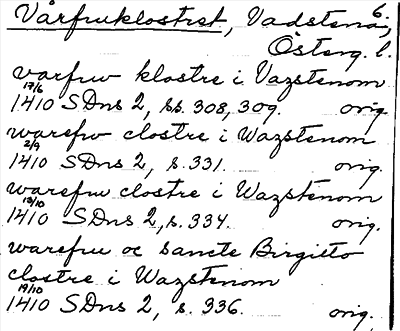 Vårfruklostret, Vadstena, 6.
Österg. l.
varfrw klostre i Vazstenom
17/6 1410 SDns 2, ss. 308, 309. orig.
warefrw clostre i Wazstenom
2/9 1410 SDns 2, s. 331. orig.
warefrw clostre i Wazstenom
13/10 1410 SDns 2, s. 334. orig.
warefru oc sancte Birgitto
clostre i Wazstenom
19/10 1410 SDns 2, s. 336. orig.